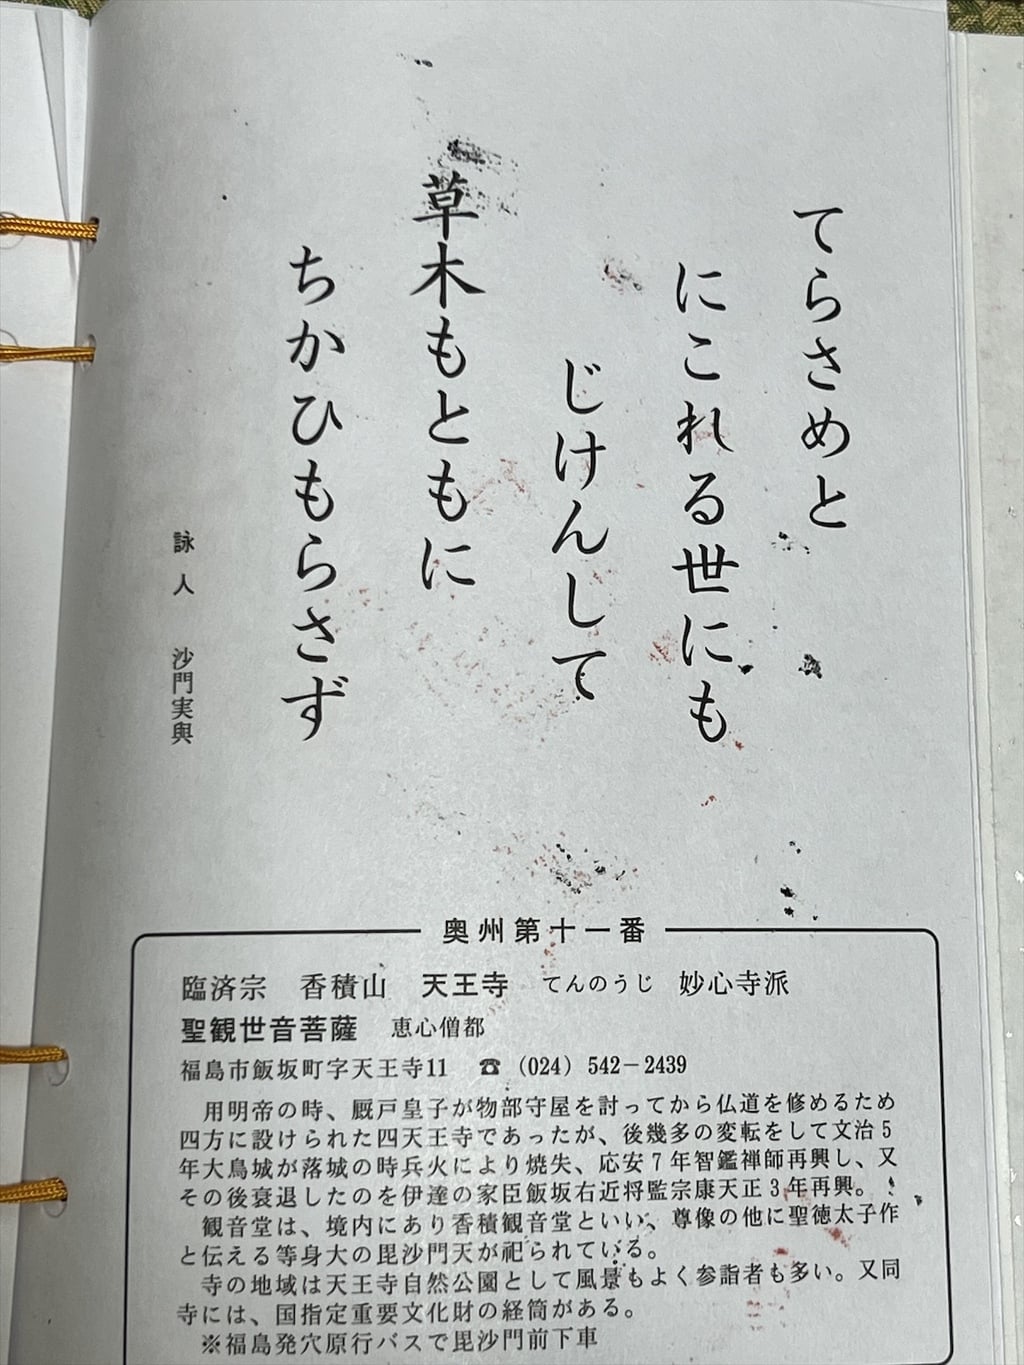 てらさめと
にこれる世にも
じけんして
草木もともに
ちかひもらさず
詠人 沙門実興
奥州第十一番
臨済宗 香積山 天王寺 てんのうじ 妙心寺派
聖観世音菩薩 恵心僧都
福島市飯坂町字天王寺11 ☎ (024) 542－2439
用明帝の時、厩戸皇子が物部守屋を討ってから仏道を修めるため
四方に設けられた四天王寺であったが、後幾多の変転をして文治5
年大鳥城が落城の時兵火により焼失、応安7年智鑑禅師再興し、又
その後衰退したのを伊達の家臣飯坂右近将監宗康天正3年再興。
観音堂は、境内にあり香積観音堂といい、尊像の他に聖徳太子作
と伝える等身大の毘沙門天が祀られている。
寺の地域は天王寺自然公園として風景もよく参詣者も多い。又同
寺には、国指定重要文化財の経筒がある。
※福島発穴原行バスで毘沙門前下車